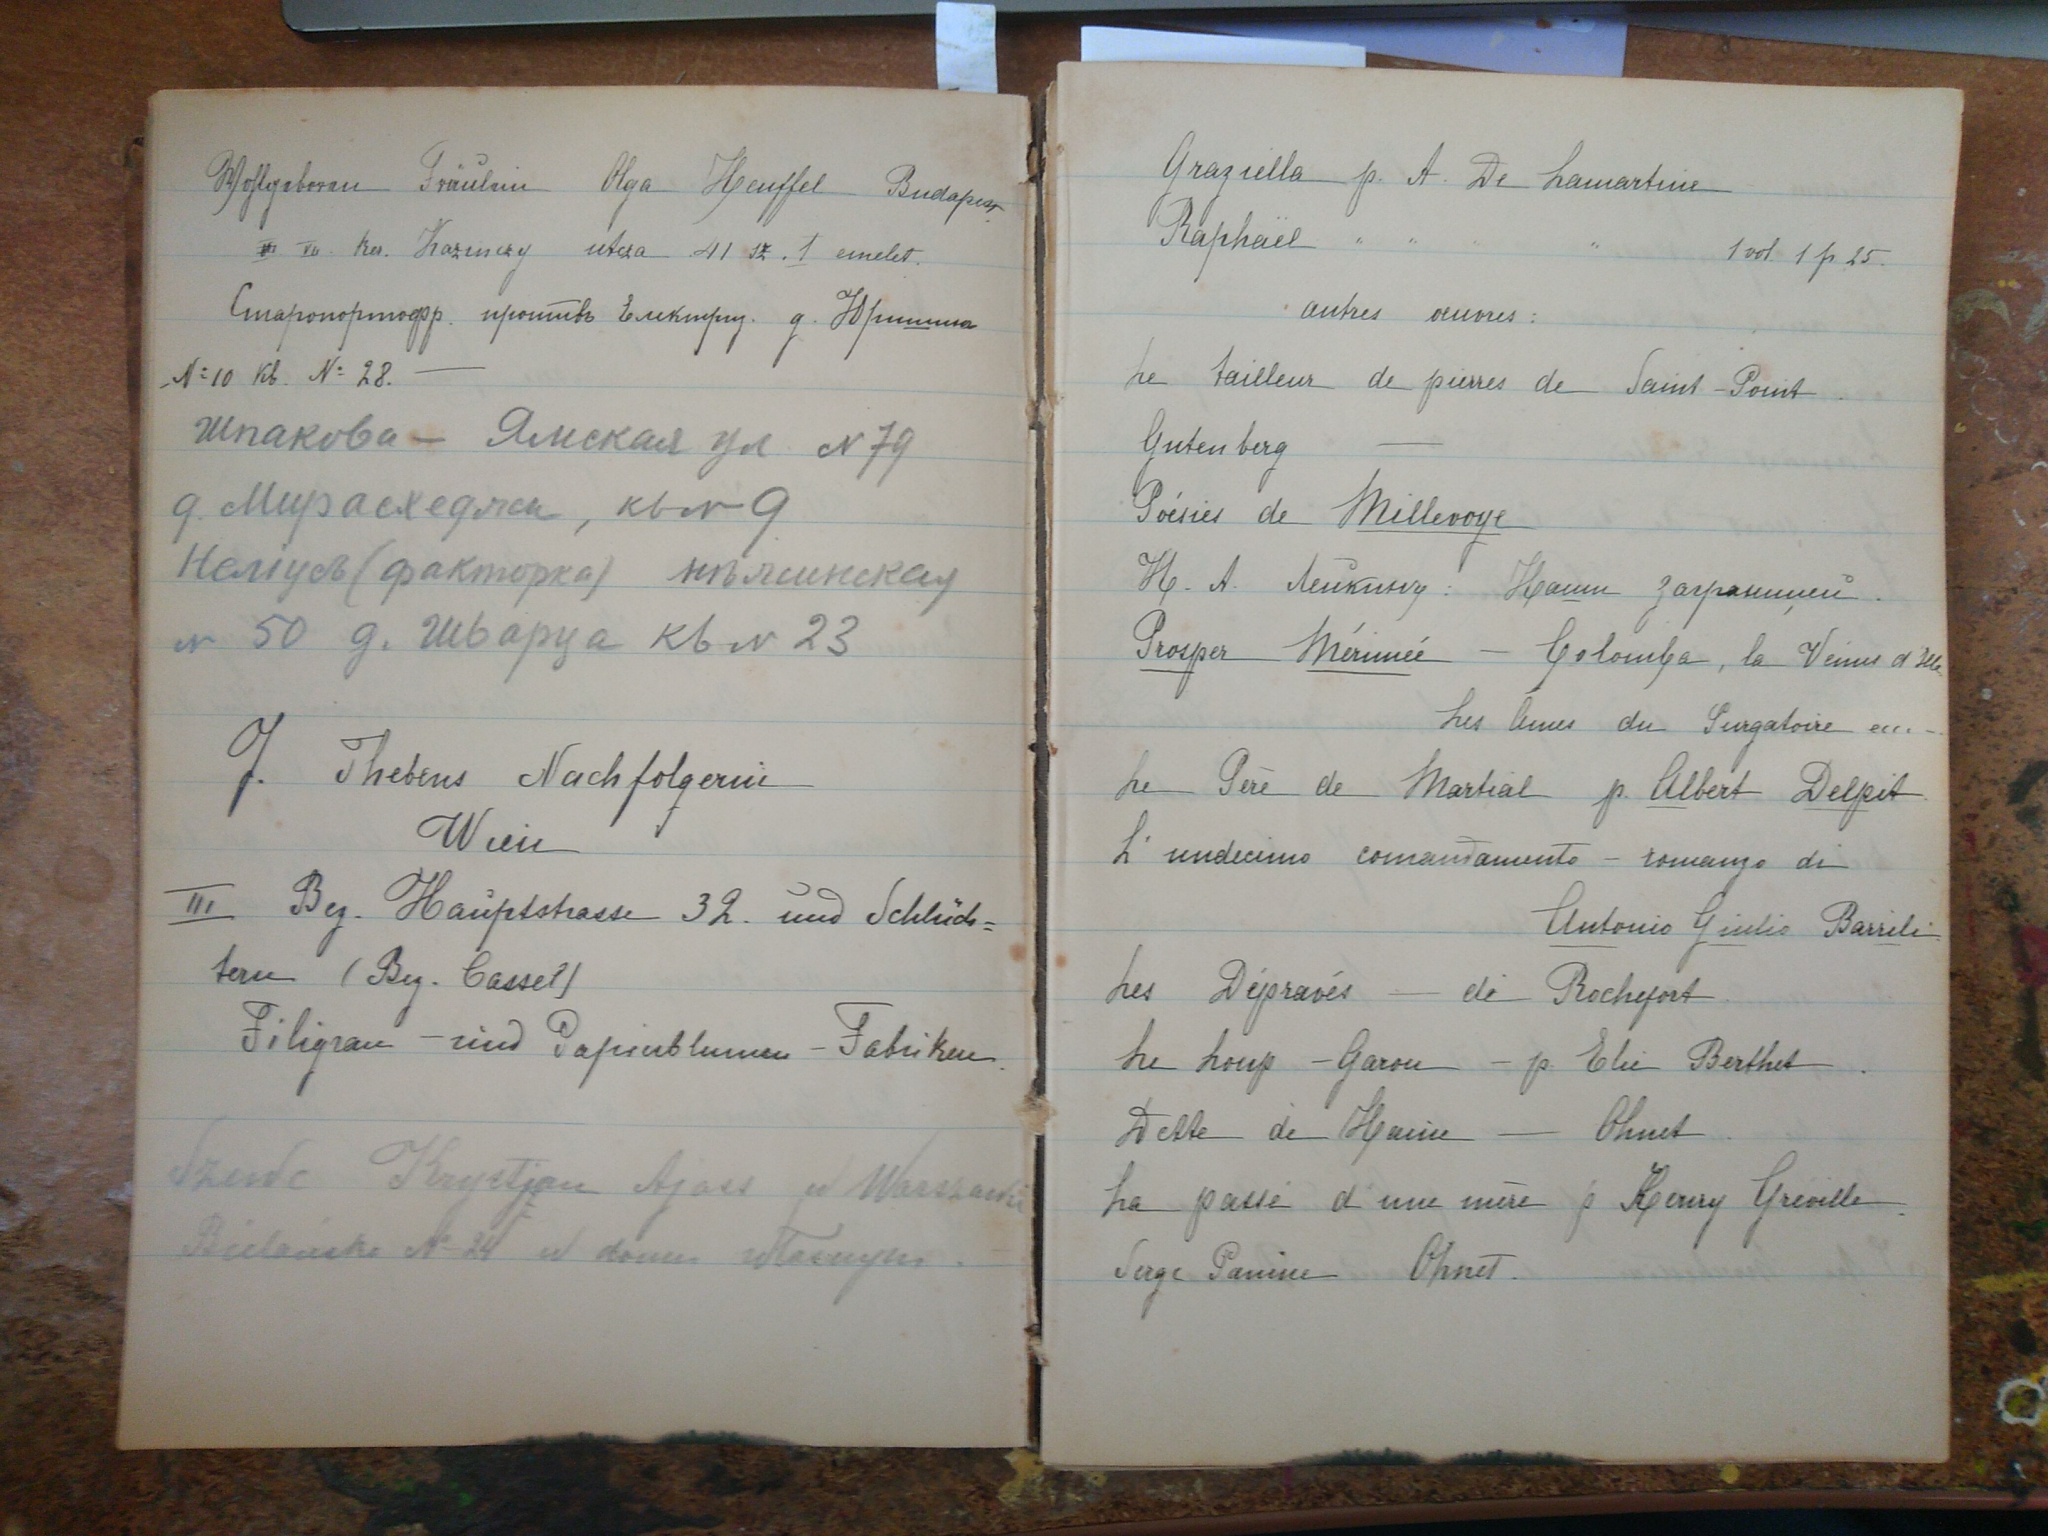 Wohlgeboren Fräulein Olga Heuffel Budapest
VII. ker. Kazinczy utcza 41 sz. 1 emelet.
Старопортофр. противъ Електрич. д. Юришича
№ 10 кв. № 28. —
Шпакова — Ямская ул N 79
д. , кв N 9
Неміусъ (факторка) нѣжинская
N 50 д. Шварца кв N 23
J. Thebens Nachfolgerin
Wien
III Bez. Hauptstrasse 32. und Schlüch=
tern (Bez. Cassel)
Filigran - und Papierblumen - Fabriken.
Szewc Krystjan Ajass w Warszawie
Bielańska № 24 w domu własnym.
Graziella p. A. De Lamartine
Raphaël " " " " 1 vol 1 fr 25.
autres œuvres:
Le tailleur de pierres de Saint-Point.
Gutenberg —
Poésies de Millevoye
Н. А. Лейкинъ: Наши заграницей.
Prosper Mérimée — Colomba, la Vénus d'Ille
Les âmes du Purgatoire etc. -
Le Père de Martial p. Albert Delpit.
L'undecimo comandamento - romanzo di
Antonio Giulio Barrili.
Les Dépravés — de Rochefort
Le Loup-Garou - p. Elie Berthet.
Dette de Haine — Ohnet.
La passé d'une mère p Henry Gréville.
Serge Panine Ohnet.